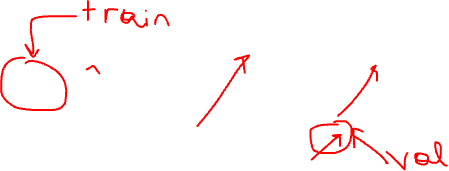 train
val